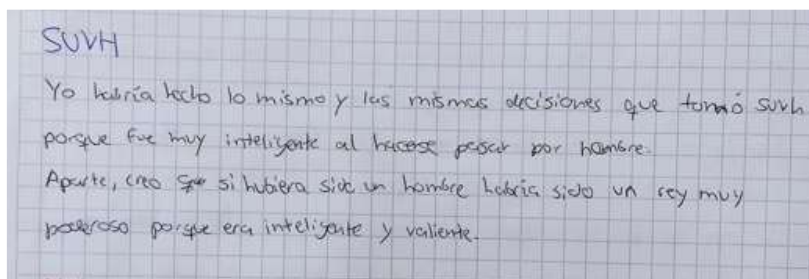 SUVH
Yo habría hecho lo mismo y las mismas decisiones que tomó suvh
porque fue muy inteligente al hacerse pasar por hombre.
Aparte, creo que si hubiera sido un hombre habría sido un rey muy
poderoso porque era inteligente y valiente.